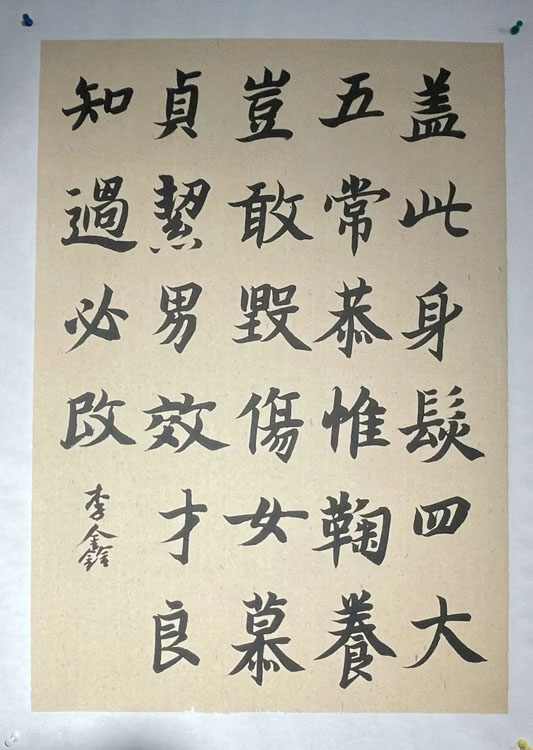 盖此身髮四大
五常恭惟鞠養
豈敢毀傷女慕
貞絜男效才良
知過必改
李鑫